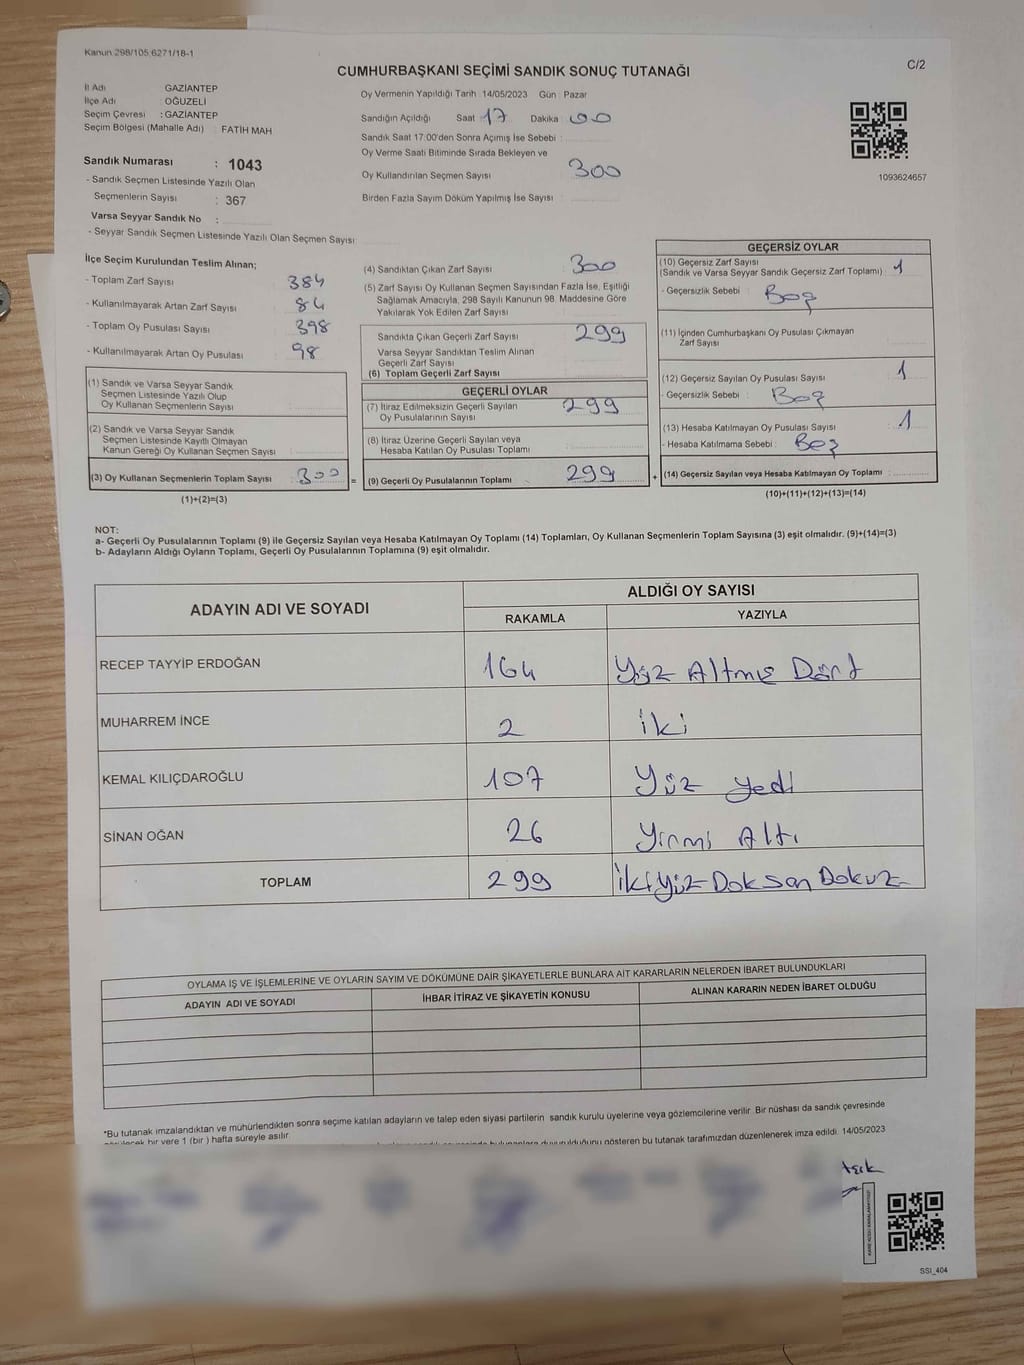 Kanun 298/105,6271/18-1
C/2
CUMHURBAŞKANI SEÇİMİ SANDIK SONUÇ TUTANAĞI
İl Adı GAZİANTEP
İlçe Adı OĞUZELİ
Seçim Çevresi : GAZİANTEP
Seçim Bölgesi (Mahalle Adı) : FATİH MAH
Sandık Numarası : 1043
- Sandık Seçmen Listesinde Yazılı Olan
Seçmenlerin Sayısı : 367
Varsa Seyyar Sandık No :
- Seyyar Sandık Seçmen Listesinde Yazılı Olan Seçmen Sayısı
Oy Vermenin Yapıldığı Tarih : 14/05/2023 Gün : Pazar
Sandığın Açıldığı Saat 17 Dakika : 00
Sandık Saat 17:00'den Sonra Açımış İse Sebebi :
Oy Verme Saati Bitiminde Sırada Bekleyen ve
Oy Kullandırılan Seçmen Sayısı 300
Birden Fazla Sayım Döküm Yapılmış İse Sayısı :
1093624657
İlçe Seçim Kurulundan Teslim Alınan;
- Toplam Zarf Sayısı : 384
- Kullanılmayarak Artan Zarf Sayısı : 84
- Toplam Oy Pusulası Sayısı : 398
- Kullanılmayarak Artan Oy Pusulası : 98
(1) Sandık ve Varsa Seyyar Sandık
Seçmen Listesinde Yazılı Olup
Oy Kullanan Seçmenlerin Sayısı :
(2) Sandık ve Varsa Seyyar Sandık
Seçmen Listesinde Kayıtlı Olmayan
Kanun Gereği Oy Kullanan Seçmen Sayısı :
(3) Oy Kullanan Seçmenlerin Toplam Sayısı : 300
(1)+(2)=(3)
=
(4) Sandıktan Çıkan Zarf Sayısı : 300
(5) Zarf Sayısı Oy Kullanan Seçmen Sayısından Fazla İse, Eşitliği
Sağlamak Amacıyla, 298 Sayılı Kanunun 98. Maddesine Göre
Yakılarak Yok Edilen Zarf Sayısı :
Sandıkta Çıkan Geçerli Zarf Sayısı : 299
Varsa Seyyar Sandıktan Teslim Alınan
Geçerli Zarf Sayısı
(6) Toplam Geçerli Zarf Sayısı
GEÇERLİ OYLAR
(7) İtiraz Edilmeksizin Geçerli Sayılan
Oy Pusulalarının Sayısı : 299
(8) İtiraz Üzerine Geçerli Sayılan veya
Hesaba Katılan Oy Pusulası Toplamı
(9) Geçerli Oy Pusulalarının Toplamı : 299
+
GEÇERSİZ OYLAR
(10) Geçersiz Zarf Sayısı
(Sandık ve Varsa Seyyar Sandık Geçersiz Zarf Toplamı) : 1
- Geçersizlik Sebebi : Boş
(11) İçinden Cumhurbaşkanı Oy Pusulası Çıkmayan
Zarf Sayısı :
(12) Geçersiz Sayılan Oy Pusulası Sayısı : 1
- Geçersizlik Sebebi : Boş
(13) Hesaba Katılmayan Oy Pusulası Sayısı : 1
- Hesaba Katılmama Sebebi : Boş
(14) Geçersiz Sayılan veya Hesaba Katılmayan Oy Toplamı :
(10)+(11)+(12)+(13)=(14)
NOT:
a- Geçerli Oy Pusulalarının Toplamı (9) ile Geçersiz Sayılan veya Hesaba Katılmayan Oy Toplamı (14) Toplamları, Oy Kullanan Seçmenlerin Toplam Sayısına (3) eşit olmalıdır. (9)+(14)=(3)
b- Adayların Aldığı Oyların Toplamı, Geçerli Oy Pusulalarının Toplamına (9) eşit olmalıdır.
ADAYIN ADI VE SOYADI ALDIĞI OY SAYISI
RAKAMLA YAZIYLA
RECEP TAYYİP ERDOĞAN 164 Yüz Altmış Dört
MUHARREM İNCE 2 iki
KEMAL KILIÇDAROĞLU 107 Yüz yedi
SİNAN OĞAN 26 Yirmi Altı
TOPLAM 299 ikiyüz Doksan Dokuz
OYLAMA İŞ VE İŞLEMLERİNE VE OYLARIN SAYIM VE DÖKÜMÜNE DAİR ŞİKAYETLERLE BUNLARA AİT KARARLARIN NELERDEN İBARET BULUNDUKLARI
ADAYIN ADI VE SOYADI İHBAR İTİRAZ VE ŞİKAYETİN KONUSU ALINAN KARARIN NEDEN İBARET OLDUĞU
*Bu tutanak imzalandıktan ve mühürlendikten sonra seçime katılan adayların ve talep eden siyasi partilerin sandık kurulu üyelerine veya gözlemcilerine verilir. Bir nüshası da sandık çevresinde
bir yere 1 (bir ) hafta süreyle asılır.
gösteren bu tutanak tarafımızdan düzenlenerek imza edildi. 14/05/2023
SSI_404